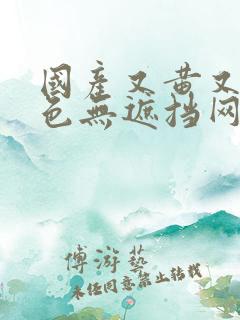 國產又黄又
色無遮挡网
傅游藝
未经同意禁止转载